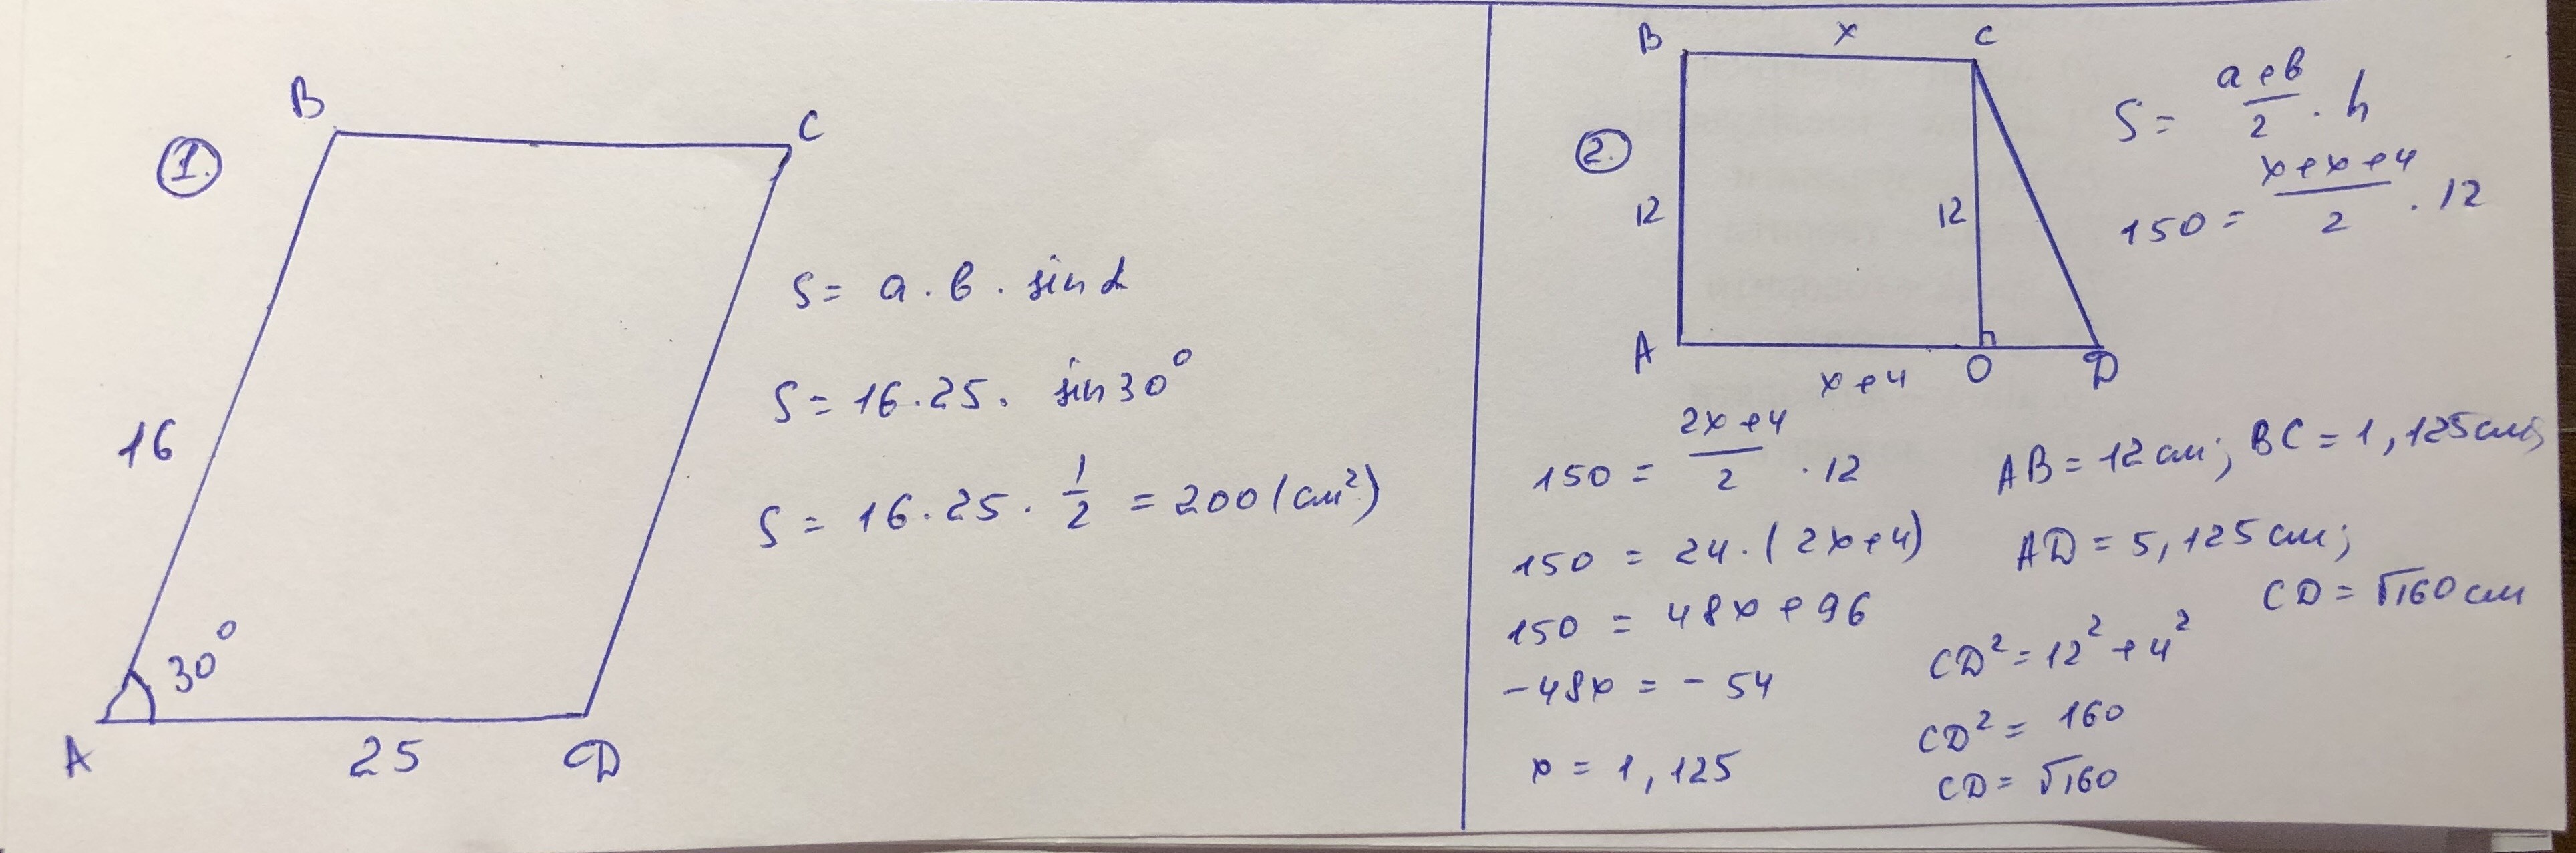 1.
B
C
16
30°
A
25
D
S = a · b · sin α
S = 16 · 25 · sin 30°
S = 16 · 25 · 1/2 = 200 (см²)
2.
B
x
C
12
12
A
x + 4
O
D
S = (a + b)/2 · h
150 = (x + x + 4)/2 · 12
150 = (2x + 4)/2 · 12
150 = 24 · (2x + 4)
150 = 48x + 96
-48x = -54
x = 1,125
AB = 12 см; BC = 1,125 см;
AD = 5,125 см;
CD = √160 см
CD² = 12² + 4²
CD² = 160
CD = √160